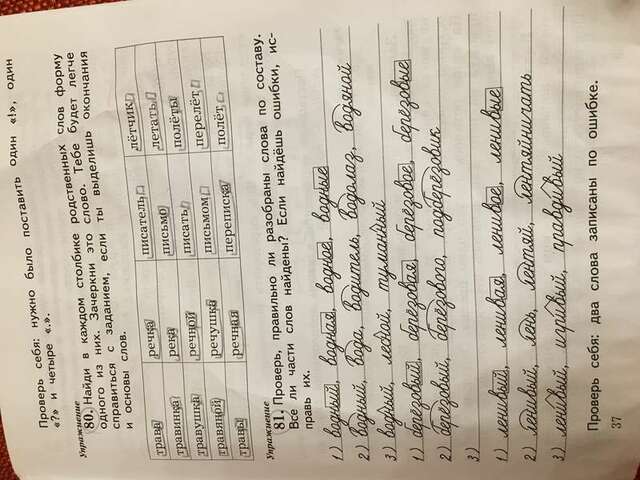 Проверь себя: нужно было поставить один «!», один
«?» и четыре «.».
Упражнение
80. Найди в каждом столбике родственных слов форму
одного из них. Зачеркни это слово. Тебе будет легче
справиться с заданием, если ты выделишь окончания
и основы слов.
трава речка писатель лётчик
травинка река письмо летать
травушка речной писать полёты
травяной речушка письмом перелёт
травы речная переписка полёт
Упражнение
81. Проверь, правильно ли разобраны слова по составу.
Все ли части слов найдены? Если найдёшь ошибки, ис-
правь их.
1) водный, водная, водное, водные
2) водный, вода, водитель, водолаз, водяной
3) водный, лесной, туманный
1) берёзовый, берёзовая, берёзовое, берёзовые
2) берёзовый, берёзовая, подберёзовик
3)
1) ленивый, ленивая, ленивое, ленивые
2) ленивый, лень, лентяй, лентяйничать
3) ленивый, игривый, правдивый
Проверь себя: два слова записаны по ошибке.
37